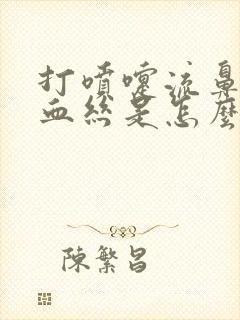 打噴嚏流鼻
血絲是怎麼
陳繁昌